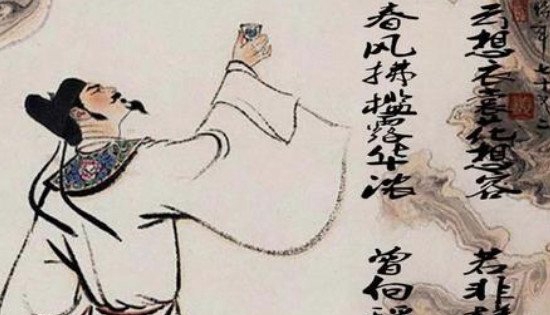 云想衣裳花想容 若非
春风拂槛露华浓 曾向